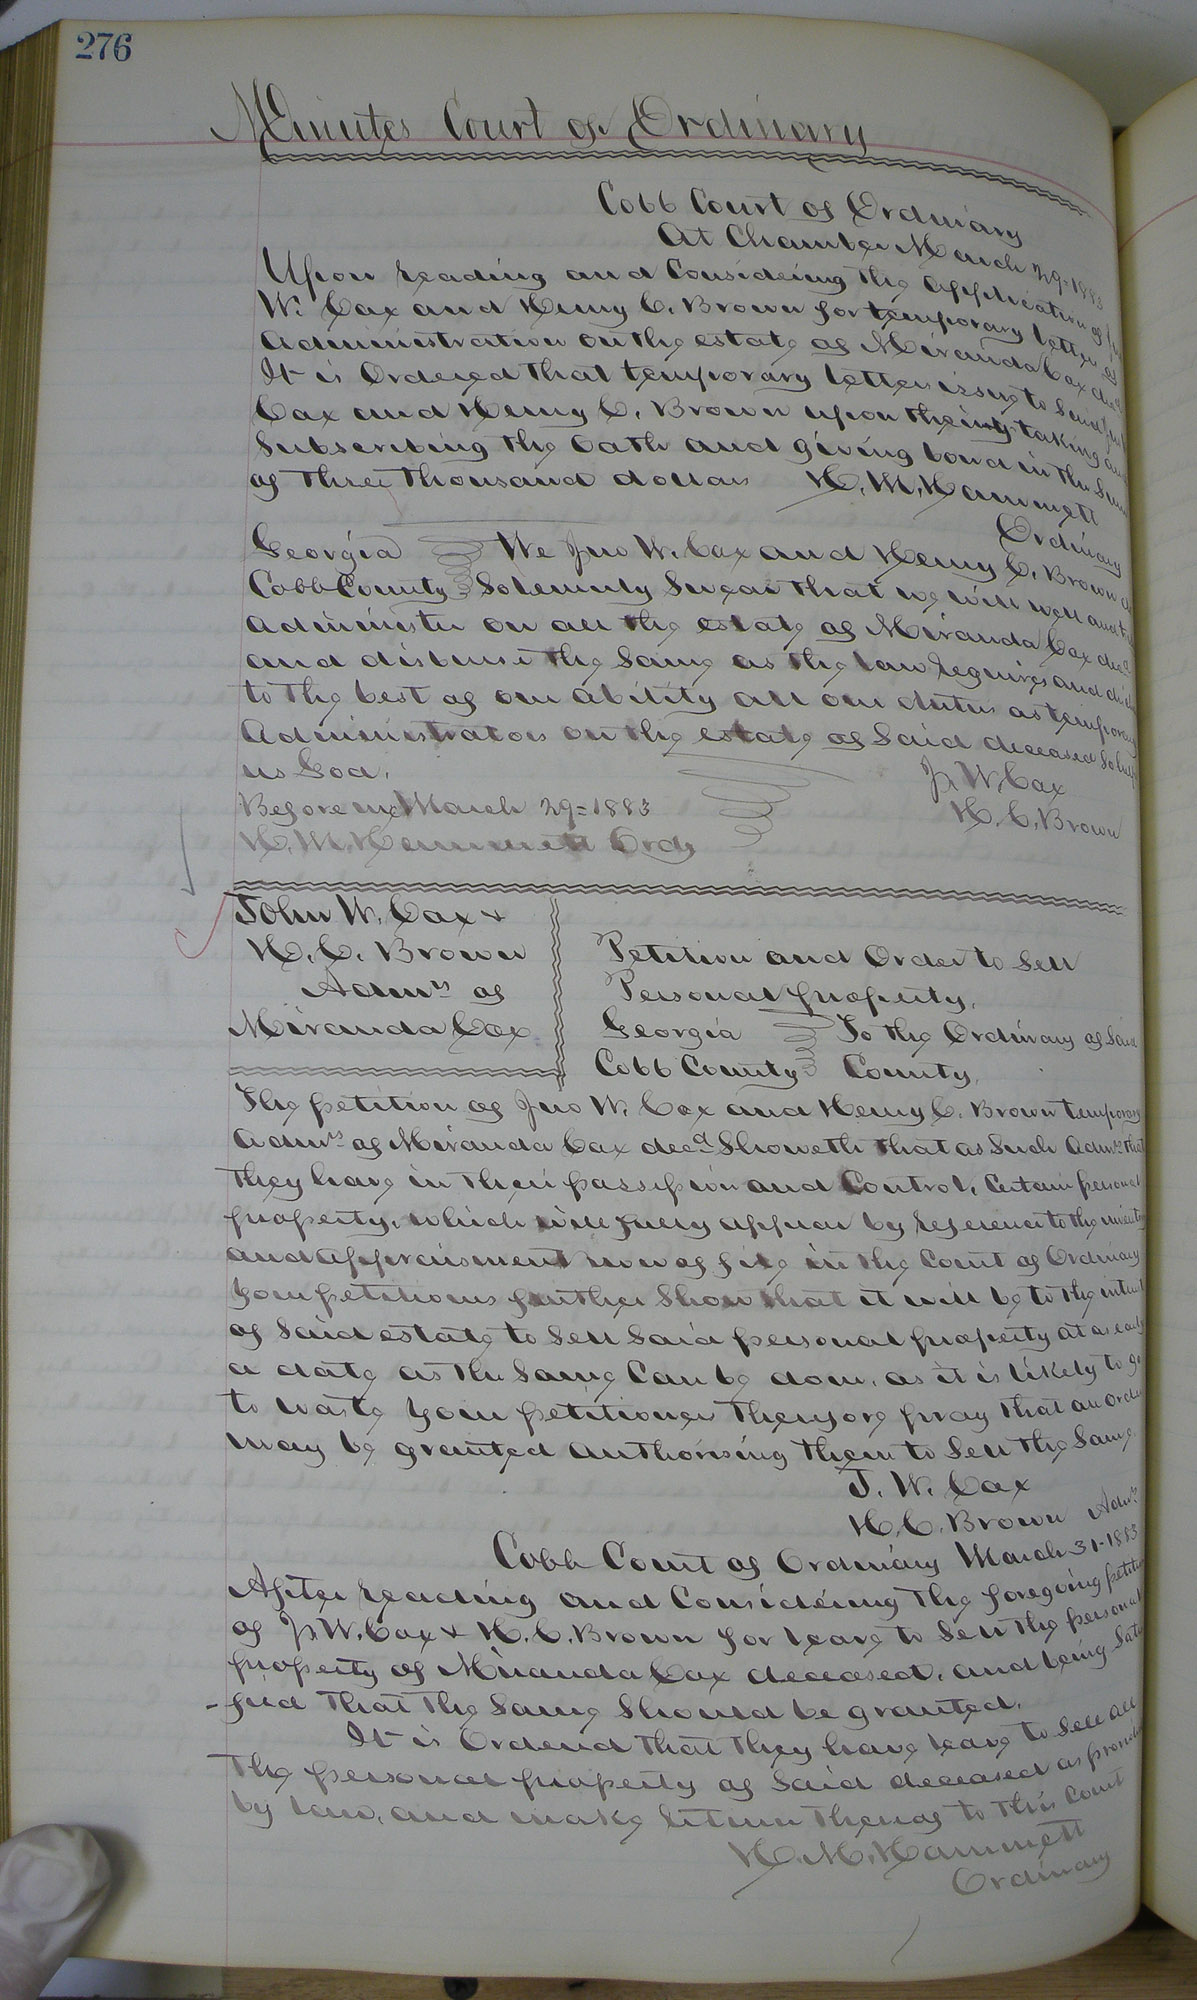 276
Minutes Court of Ordinary
Cobb Court of Ordinary
At Chamber March 29=1883
Upon reading and Considering the application of
W. Cox and Henry C. Brown for temporary letters
Administration on the estate of Miranda Cox decd
It is Ordered that temporary letters issue to said
Cox and Henry C. Brown upon their taking and
Subscribing the Oath and giving bond in the Sum
of three thousand dollars H. M. Hammett
Ordinary
Georgia We Jno W. Cox and Henry C. Brown do
Cobb County Solemnly Swear that we will well and
Administer on all the estate of Miranda Cox decd
and disburse the same as the law requires and
to the best of our ability all our duties as temporary
Administrators on the estate of said deceased So help
us God.
Jno W. Cox
Before me March 29=1883
H. C. Brown
H. M. Hammett Ordy
John W. Cox &
H. C. Brown
Admrs of
Miranda Cox
Petition and Order to Sell
Personal property.
Georgia To the Ordinary of said
Cobb County County.
The petition of Jno W. Cox and Henry C. Brown temporary
Admrs of Miranda Cox decd Showeth that as Such Admrs that
they have in their possession and Control, Certain personal
property, which will fully appear by reference to the
and appraisment now of file in the Court of Ordinary
Your petitioners further Show that it will be to the
of said estate to Sell said personal property at as early
a date as the same Can be done, as it is likely to go
to waste Your petitioners therefore pray that an order
may be granted authorising them to Sell the same.
J. W. Cox
H. C. Brown Admrs
Cobb Court of Ordinary March 31-1883
After reading and Considering the foregoing petition
of Jno W. Cox & H. C. Brown for leave to Sell the personal
property of Miranda Cox deceased, and being Satis
-fied that the same should be granted.
It is Ordered that they have leave to Sell all
the personal property of said deceased as provided
by law, and make return thereof to this Court
H. M. Hammett
Ordinary